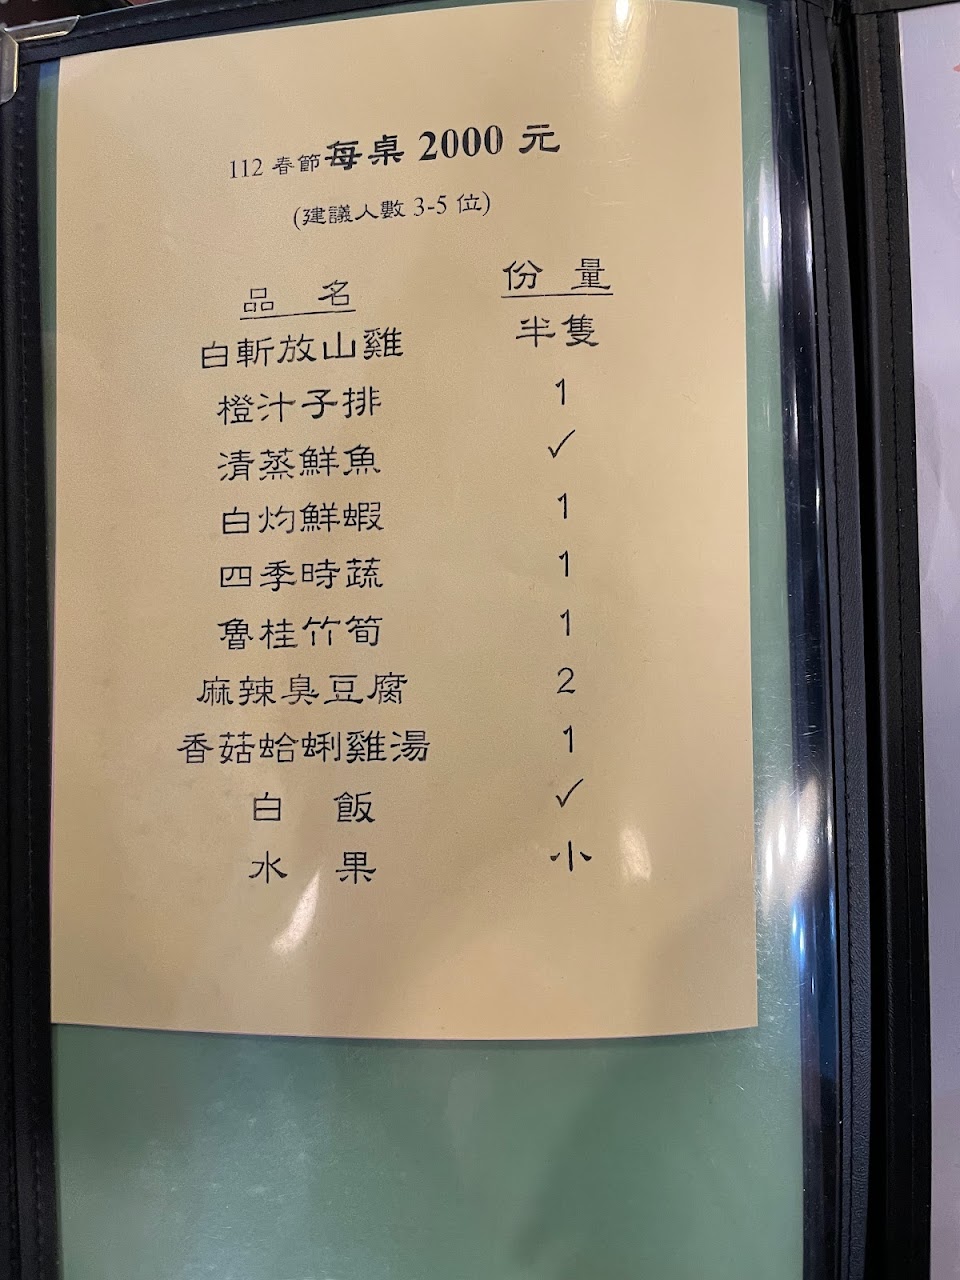 112 春節每桌 2000 元
(建議人數 3-5 位)
品 名 份 量
白斬放山雞 半隻
橙汁子排 1
清蒸鮮魚 ✓
白灼鮮蝦 1
四季時蔬 1
魯桂竹筍 1
麻辣臭豆腐 2
香菇蛤蜊雞湯 1
白 飯 ✓
水 果 小